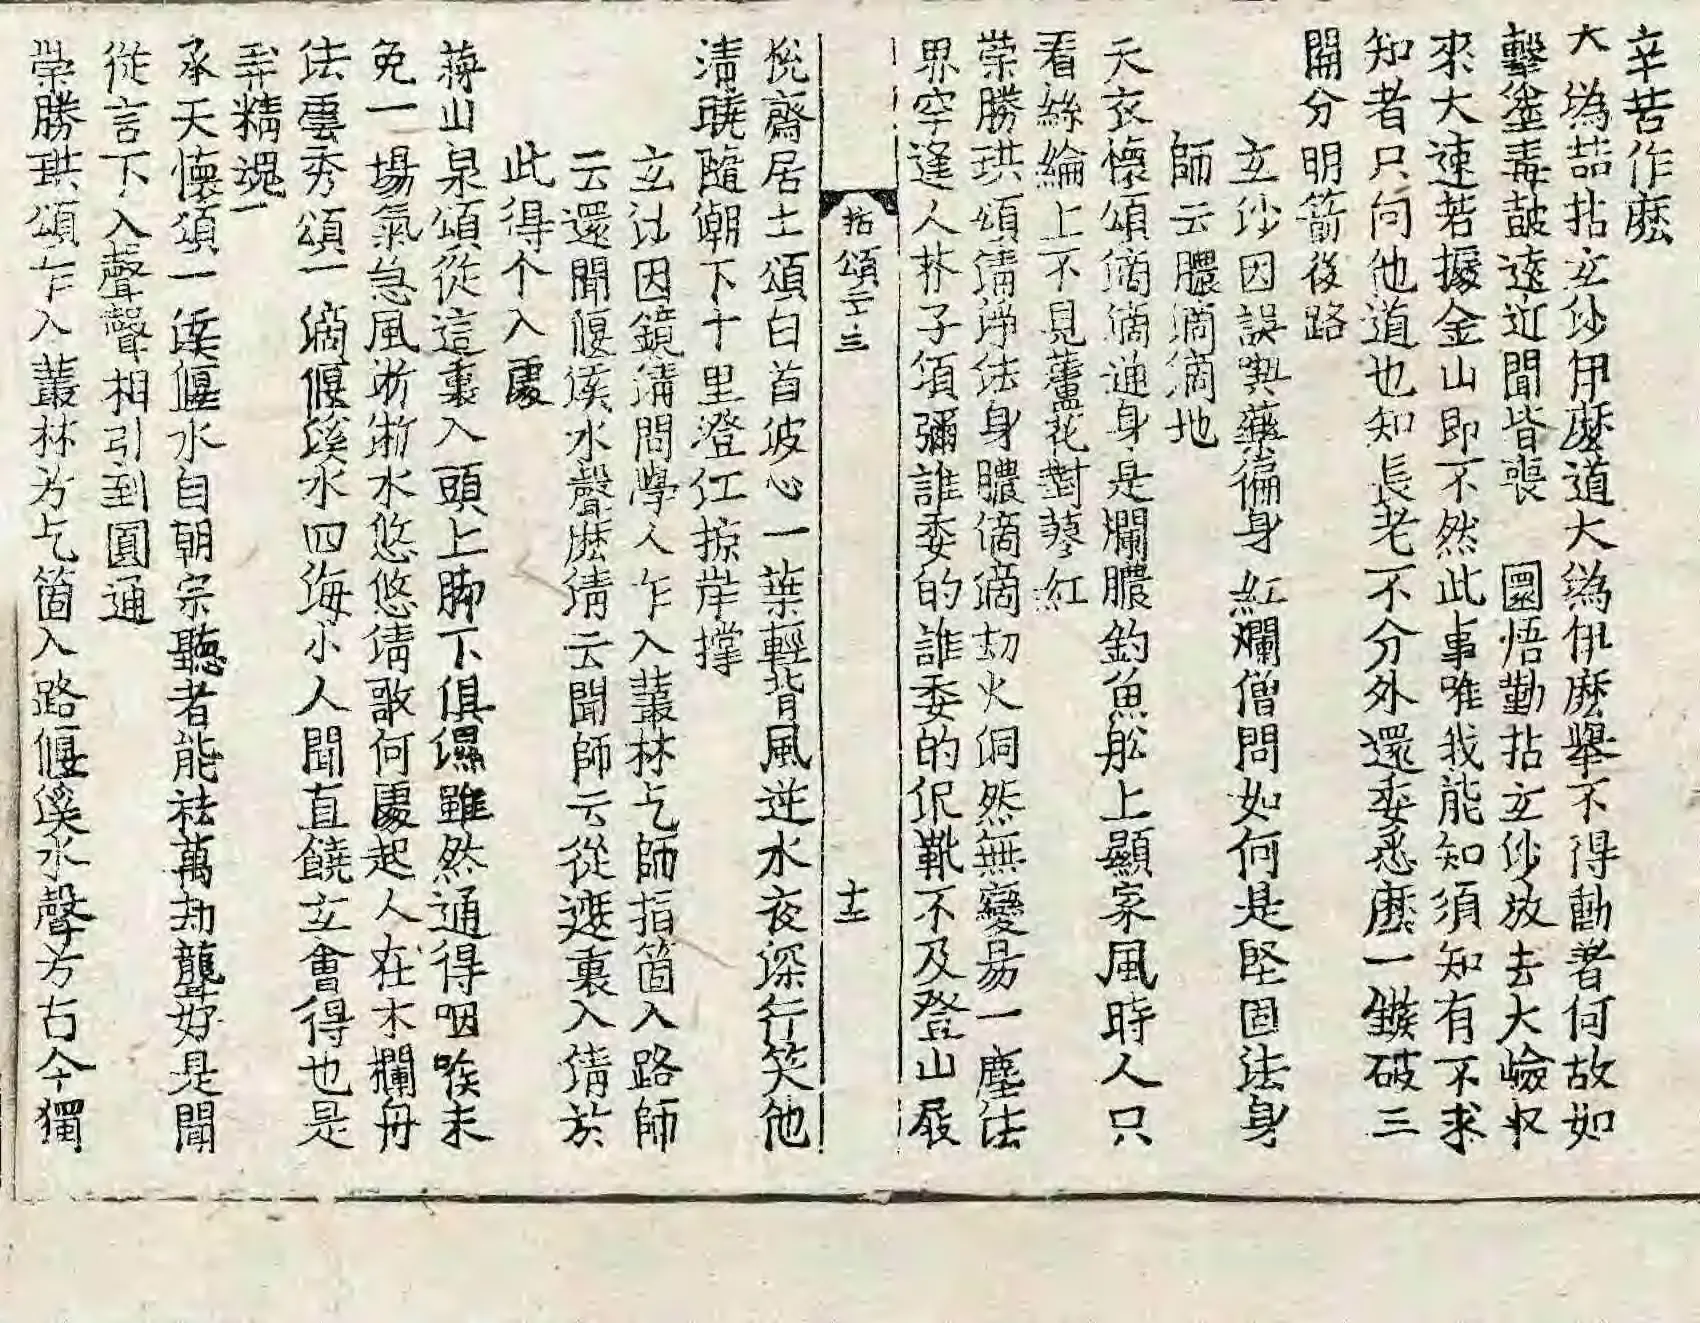 辛苦作麽
大溈喆拈玄沙伊麽道大溈伊麽舉不得動著何故如
擊塗毒皷遠近聞皆喪　圜悟勤拈玄沙放去大嶮収
來大速若據金山即不然此事唯我能知須知有不求
知者只向他道也知長老不分外還委悉麽一鏃破三
開分明箭後路
玄沙因誤興藥徧身紅爛僧問如何是堅固法身
師云膿滴滴地
天衣懷頌滴滴通身是爛膿釣魚舩上顯家風時人只
看絲綸上不見蘆花對蓼紅
崇勝珙頌清淨法身膿滴滴刧火洞然無變易一塵法
界空逢人莽子項彌誰委的誰委的伬靴不及登山屐
拈頌二十三
十二
悅齋居士頌白首波心一葉輕背風逆水夜深行笑他
淸曉隨潮下十里澄江掠岸撑
玄沙因鏡淸問學人乍入叢林乞師指箇入路師
云還聞偃溪水聲麽淸云聞師云從遮裏入淸於
此得个入處
蔣山泉頌從這裏入頭上脚下俱濕雖然通得咽喉未
免一場氣急風淅淅水悠悠淸歌何處起人在木欄舟
法雲秀頌一滴偃溪水四海小人聞直饒玄會得也是
弄精魂
承天懷頌一溪偃水自朝宗聽者能袪萬劫聾好是聞
從言下入聲聲相引到圓通
崇勝珙頌乍入叢林方乞箇入路偃溪水聲方古今獨